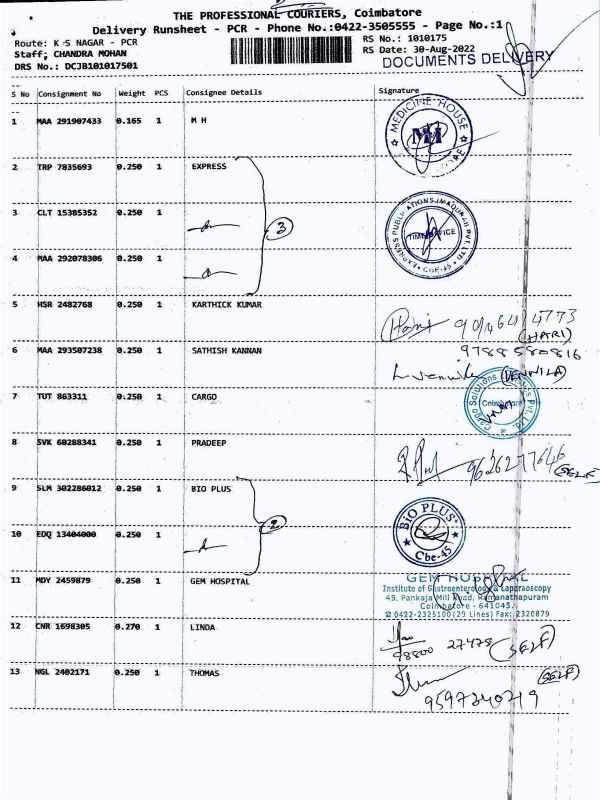 THE PROFESSIONAL COURIERS, Coimbatore
Delivery Runsheet - PCR - Phone No.:0422-3505555 - Page No.:1
Route: K S NAGAR - PCR RS No.: 1010175
Staff; CHANDRA MOHAN RS Date: 30-Aug-2022
DRS No.: DCJB101017501 DOCUMENTS DELIVERY
S No Consignment No Weight PCS Consignee Details Signature
1 MAA 291907433 0.165 1 M H
MEDICINE HOUSE
2 TRP 7835693 0.250 1 EXPRESS
3 CLT 15385352 0.250 1
3
4 MAA 292078306 0.250 1
EXPRESS PUBLICATIONS (MADURAI) PVT. LTD
TIME OFFICE
CBE-45
5 HSR 2482768 0.250 1 KARTHICK KUMAR
(HARI)
6 MAA 293507238 0.250 1 SATHISH KANNAN 9788580816
(VENNILA)
7 TUT 863311 0.250 1 CARGO
Cargo Solutions Pvt. Ltd.
Coimbatore
8 SVK 60288341 0.250 1 PRADEEP 9626277646
(SELF)
9 SLM 302286012 0.250 1 BIO PLUS
2
10 EDQ 13404000 0.250 1
BIO PLUS
Cbe-45
11 MDY 2459879 0.250 1 GEM HOSPITAL GEM HOSPITAL
Institute of Gastroenterology & Laparaoscopy
45, Pankaja Mill Road, Ramanathapuram
Coimbatore - 641045.
☎ 0422-2325100 (20 Lines) Fax: 2320879
12 CNR 1698305 0.270 1 LINDA
98800 27478 (SELF)
13 NGL 2402171 0.250 1 THOMAS (SELF)
9597240719